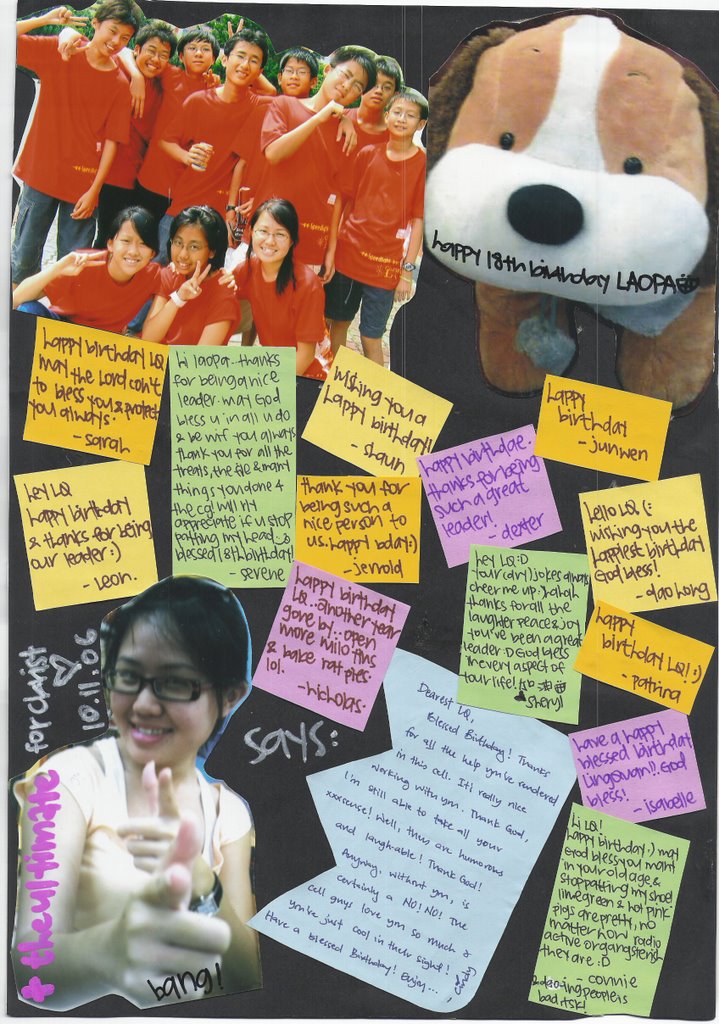 happy 18th birthday LAOPA
happy birthday LQ
may the Lord con't
to bless you & protect
you always.
- sarah
hi laopa.. thanks
for being a nice
leader. may God
bless u in all u do
& be w/f you always
thank you for all the
treats, the
things you done 4
the cg! will rly
appreciate if u stop
patting my head.
blessed 18th birthday!
- serene
wishing you a
happy birthday!
- shaun
happy
birthday
- junwen
happy birthdae.
thanks for being
such a great
leader!
- dexter
hey LQ
happy birthday
& thanks for being
our leader :)
- leon.
thank you for
being such a
nice person to
us. happy bday :)
- jerrold
hello LQ (:
wishing you the
happiest birthday
God bless!
- dao hong
hey LQ :D
your (dry) jokes always
cheer me up :) hahah
thanks for all the
laughter peace & joy
you've been a great
leader :D God bless
in every aspect of
your life!
sheryl
happy birthday
LQ.. another year
gone by.. open
more milo tins
& bake rat pies
lol.
- nicholas.
happy
birthday LQ! :)
- patrina
have a happy
blessed birthday
lingquan!! God
bless!
- isabelle
for christ
10.11.06
+ the ultimate
says:
bang!
Dearest LQ,
Blessed Birthday! Thanks
for all the help you've rendered
in this cell. It's really nice
working with you. Thank God,
I'm still able to take all your
xxxsense! Well, they are humorous
and laugh-able! Thank God!
Anyway, without you, is
certainly a NO! NO! The
cell guys love you so much &
you've just cool in their sight!
Have a Blessed Birthday! Enjoy...
cindy
hi LQ!
happy birthday :) may
God bless you many
in your old age &
stop patting my shoe!
lime green & hot pink
pigs are pretty, no
matter how radio
active or gangsterish
they are :D
- connie
people is
bad itsk!